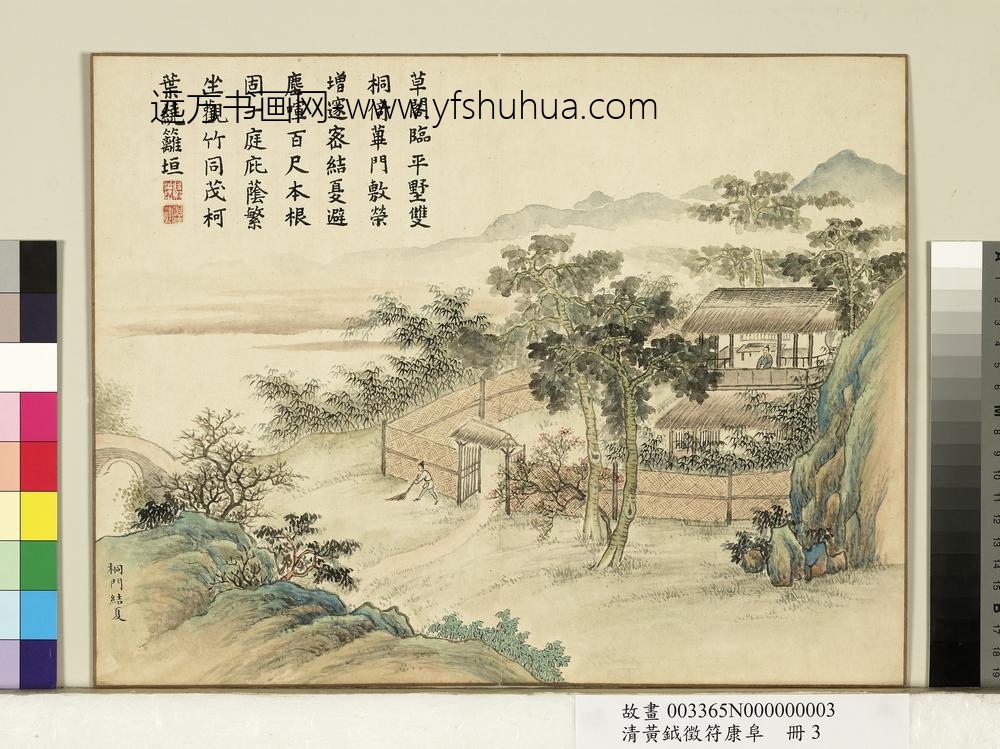 草閣臨平墅雙
桐倚蓽門敷榮
增邃密結夏避
塵喧百尺本根
固一庭庇蔭繁
坐觀竹同茂柯
葉繞籬垣
远方书画网: www.yfshuhua.com
桐門結夏
故畫 003365N000000003
清黃鉞徵符康阜 冊 3